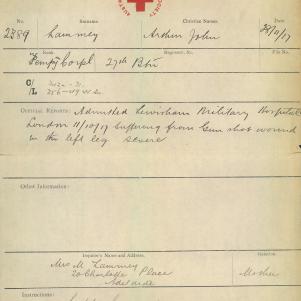 No. Surname Christian Names.
2389 Lammey Arthur John 28/11/17
Rank. Regimental No. File No.
Temp/Corpl 27th Btn
C/L
OFFICIAL REPORTS: Admitted Lewisham Military Hospital
London 11/10/17 suffering from Gun shot wound
in the left leg severe
OTHER INFORMATION:
Inquirer's Name and Address. Relation.
Mrs M. Lammey Mother
20 Charlotte Place
Adelaide
Instructions: